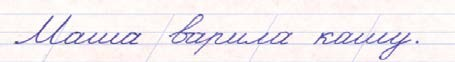 Маша варила кашу.